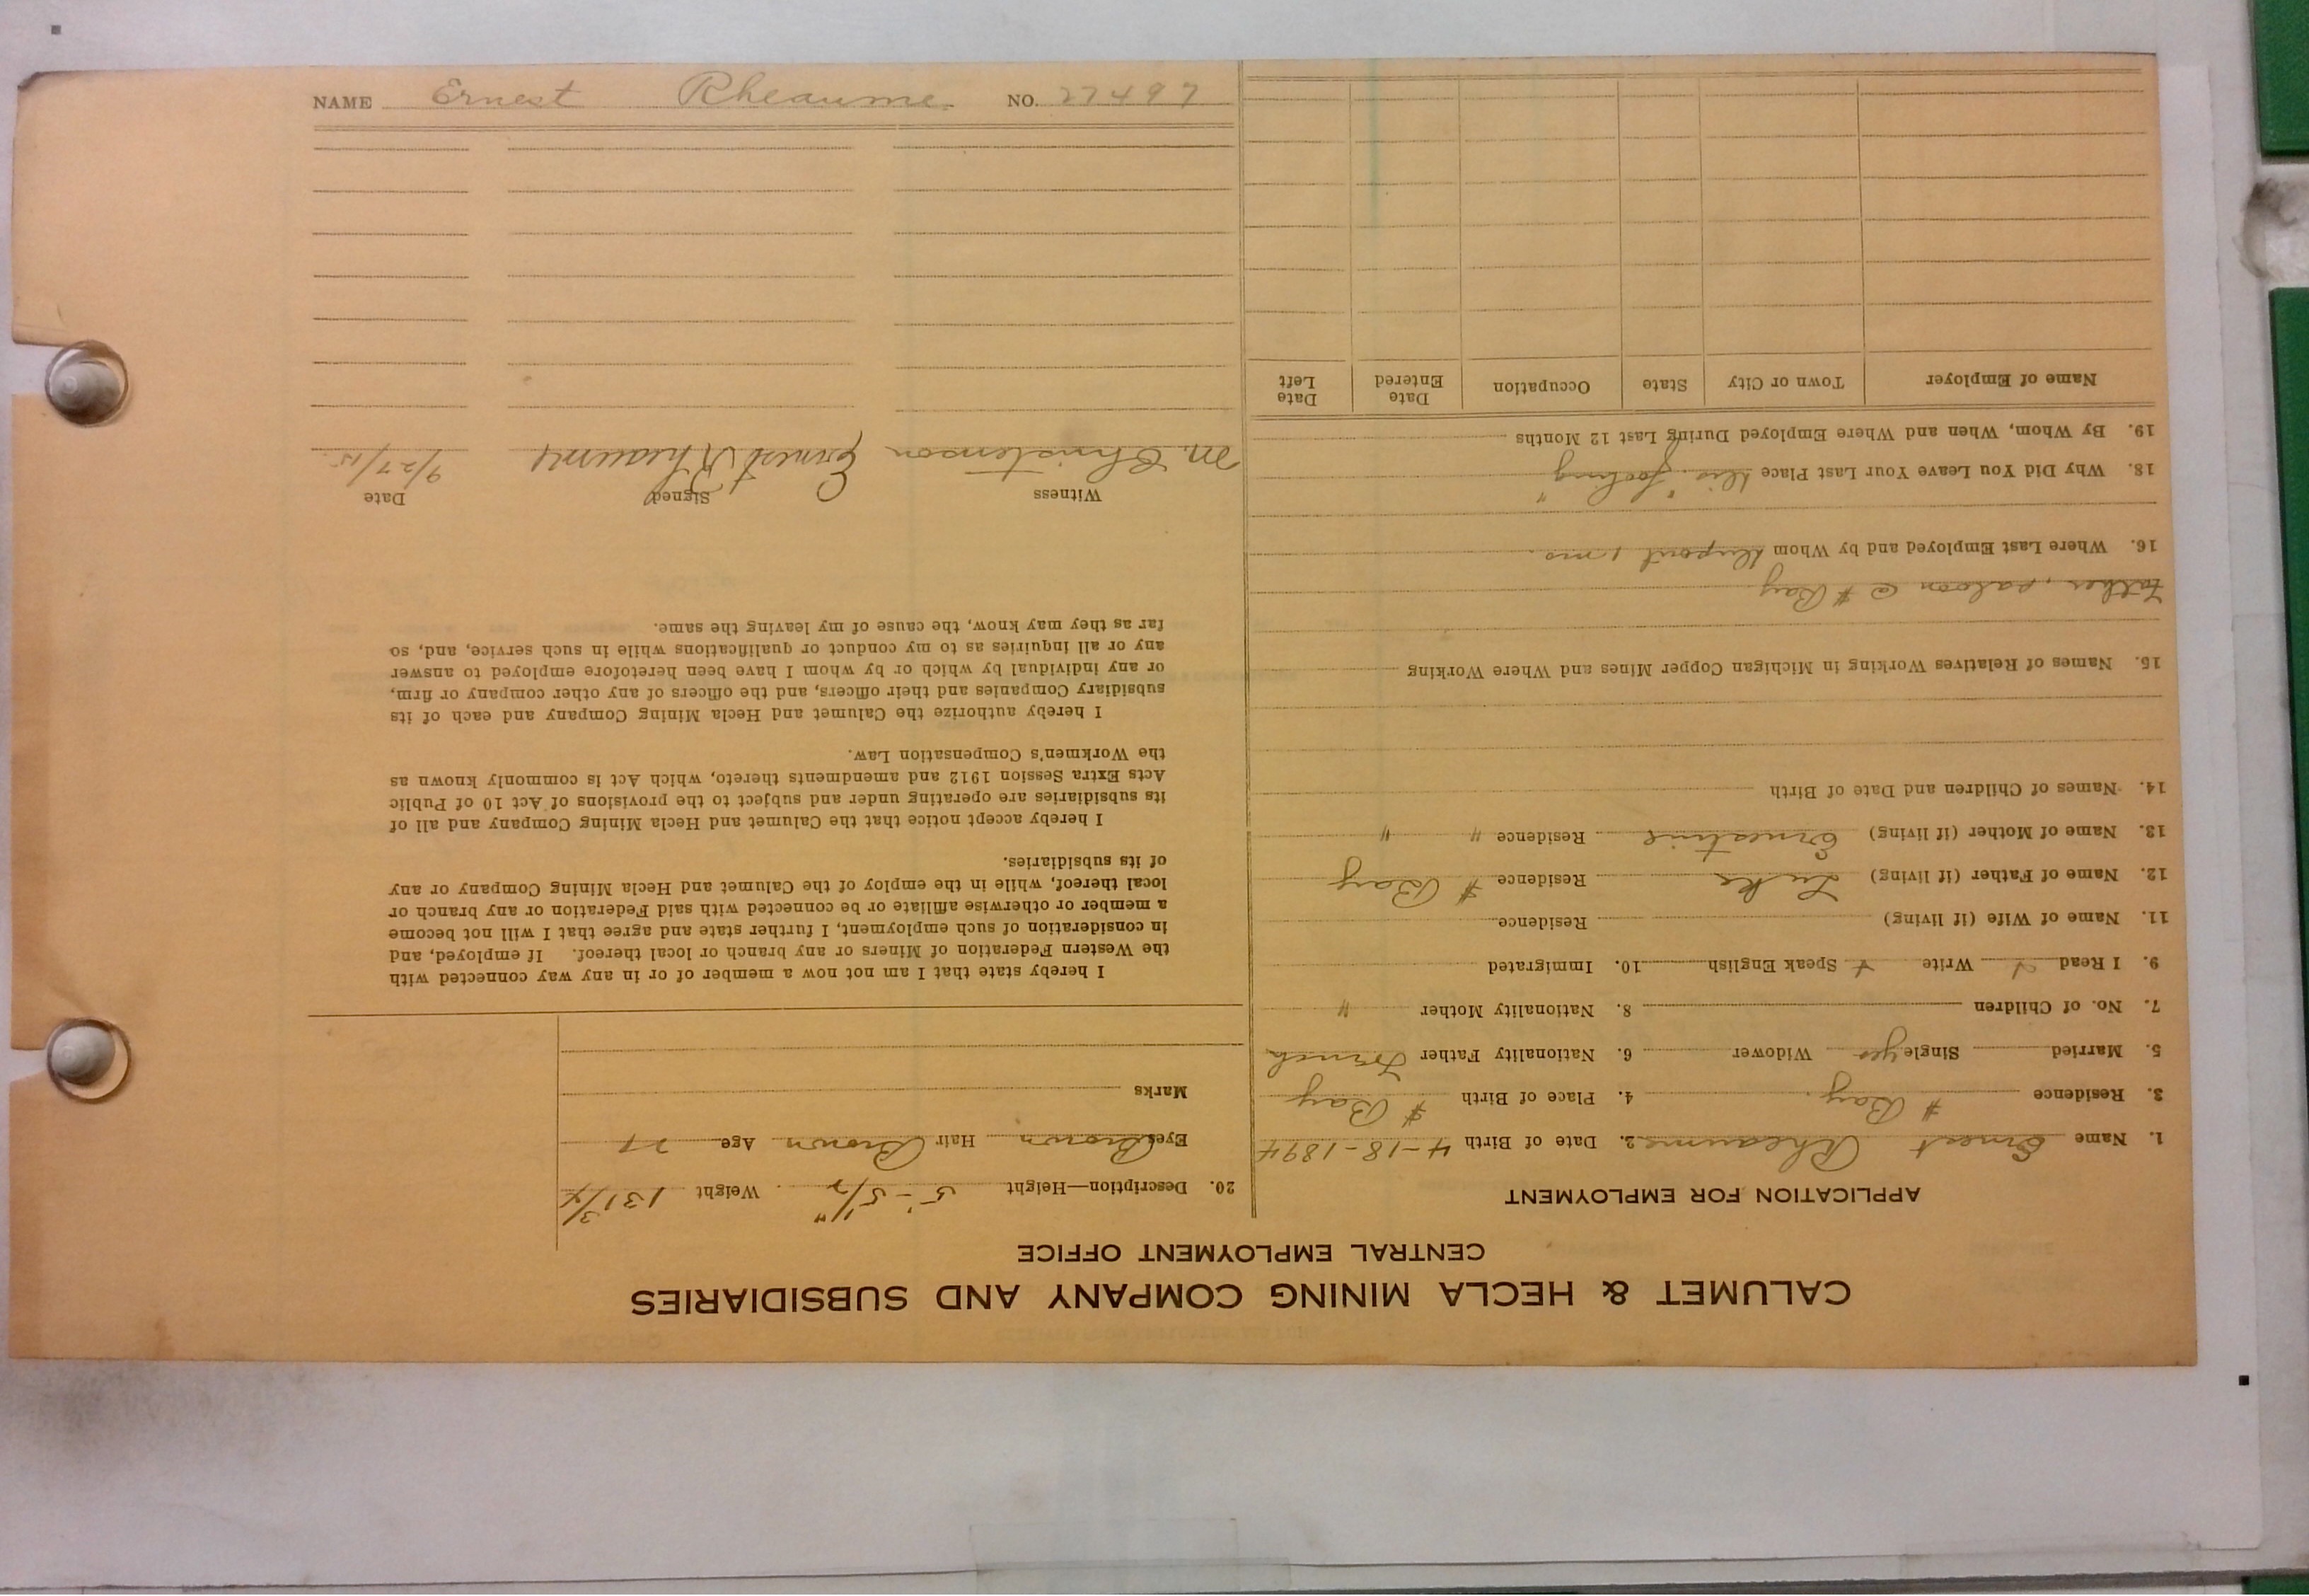 CALUMET & HECLA MINING COMPANY AND SUBSIDIARIES
CENTRAL EMPLOYMENT OFFICE
APPLICATION FOR EMPLOYMENT
1. Name Ernest Rheaume 2. Date of Birth 4-18-1894
3. Residence # Bay. 4. Place of Birth # Bay
5. Married Single yes Widower 6. Nationality Father French
7. No. of Children 8. Nationality Mother "
9. I Read Write Speak English 10. Immigrated
11. Name of Wife (if living) Residence
12. Name of Father (if living) Luke Residence # Bay
13. Name of Mother (if living) Ernestine Residence " "
14. Names of Children and Date of Birth
15. Names of Relatives Working in Michigan Copper Mines and Where Working
Father, saloon @ # Bay
16. Where Last Employed and by Whom Dupont 1 mo.
18. Why Did You Leave Your Last Place "fooling"
19. By Whom, When and Where Employed During Last 12 Months
Name of Employer Town or City State Occupation Date Entered Date Left
20. Description—Height 5'-5 1/2" Weight 131 3/4
Eyes Brown Hair Brown Age 21
Marks
I hereby state that I am not now a member of or in any way connected with
the Western Federation of Miners or any branch or local thereof. If employed, and
in consideration of such employment, I further state and agree that I will not become
a member or otherwise affiliate or be connected with said Federation or any branch or
local thereof, while in the employ of the Calumet and Hecla Mining Company or any
of its subsidiaries.
I hereby accept notice that the Calumet and Hecla Mining Company and all of
its subsidiaries are operating under and subject to the provisions of Act 10 of Public
Acts Extra Session 1912 and amendments thereto, which Act is commonly known as
the Workmen's Compensation Law.
I hereby authorize the Calumet and Hecla Mining Company and each of its
subsidiary Companies and their officers, and the officers of any other company or firm,
or any individual by which or by whom I have been heretofore employed to answer
any or all inquiries as to my conduct or qualifications while in such service, and, so
far as they may know, the cause of my leaving the same.
Witness Signed Date
M. Christenson Ernest Rheaume 9/27/15
NAME Ernest Rheaume. NO. 27497